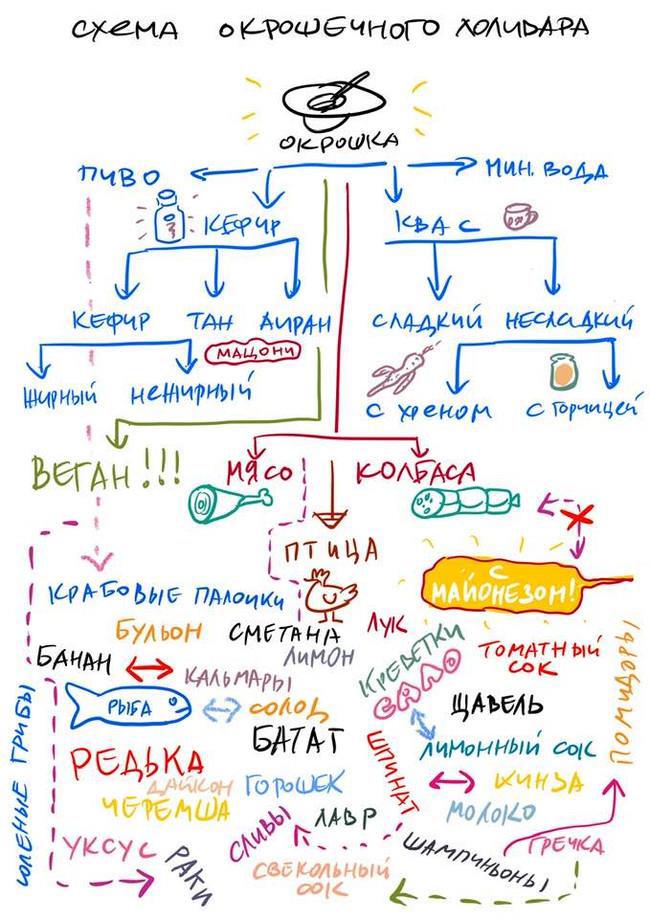 СХЕМА ОКРОШЕЧНОГО ХОЛИВАРА
ОКРОШКА
ПИВО
МИН. ВОДА
КЕФИР
КВАС
КЕФИР ТАН АИРАН
СЛАДКИЙ НЕСЛАДКИЙ
МАЦОНИ
ЖИРНЫЙ НЕЖИРНЫЙ
С ХРЕНОМ С ГОРЧИЦЕЙ
ВЕГАН!!!
МЯСО
КОЛБАСА
ПТИЦА
С
МАЙОНЕЗОМ!
КРАБОВЫЕ ПАЛОЧКИ
БУЛЬОН
СМЕТАНА
ЛУК
ЛИМОН
БАНАН
КАЛЬМАРЫ
КРЕВЕТКИ
САЛО
ТОМАТНЫЙ
СОК
ПОМИДОРЫ
РЫБА
СОЛОД
ЩАВЕЛЬ
БАТАТ
ЛИМОННЫЙ СОК
СОЛЕНЫЕ ГРИБЫ
РЕДЬКА
ДАЙКОН
ГОРОШЕК
ШПИНАТ
КИНЗА
ЧЕРЕМША
ЛАВР
МОЛОКО
СЛИВЫ
УКСУС
РАКИ
СВЕКОЛЬНЫЙ
СОК
ШАМПИНЬОНЫ
ГРЕЧКА